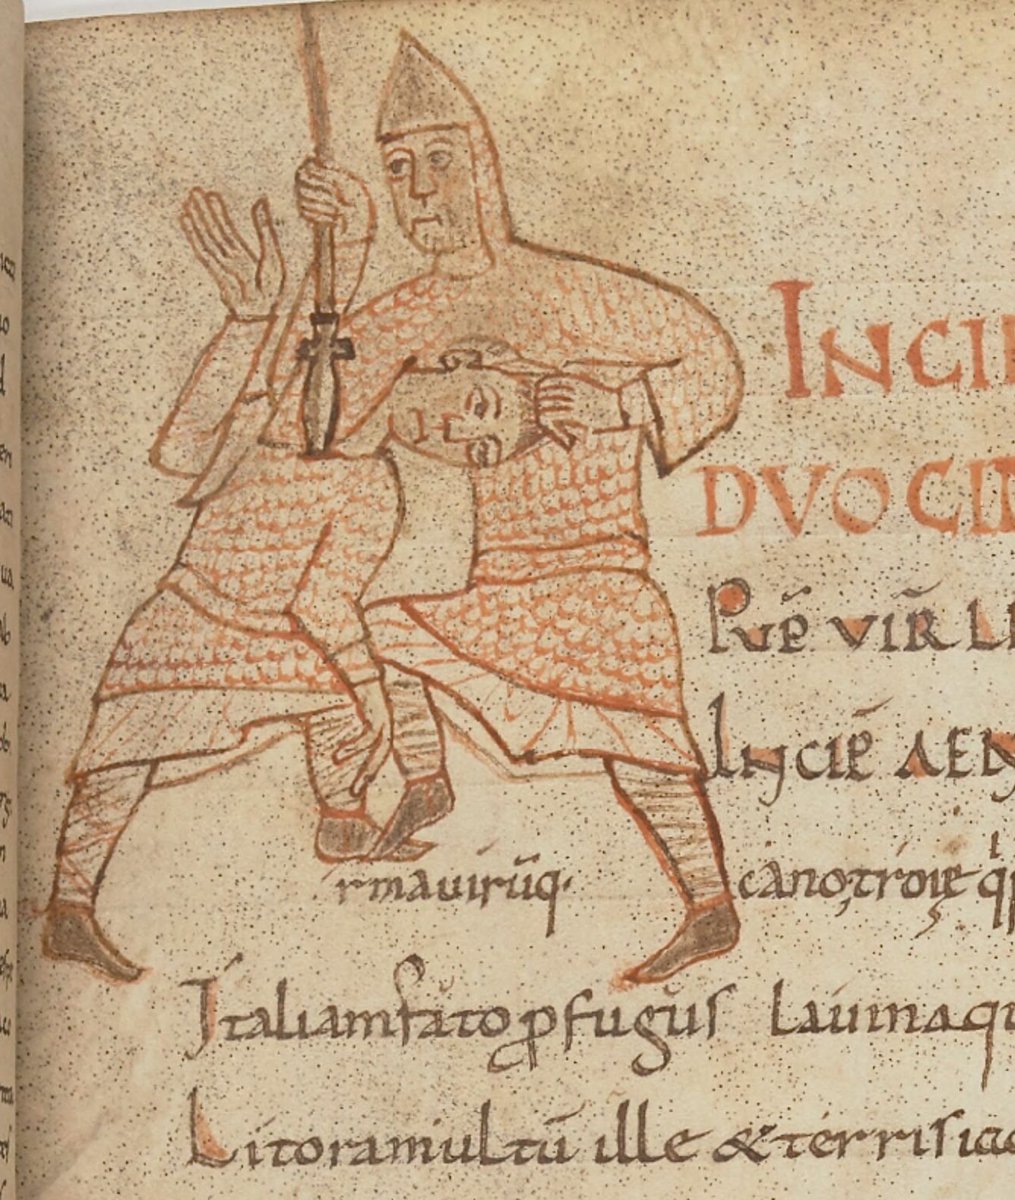 INCI
DVO CI
Pup̄ vir̄ L
Incip̄ AEN
rmauirūq· cano, troię q
Italiam fato ꝓfugus lauinaq
Litora multū ille & terris